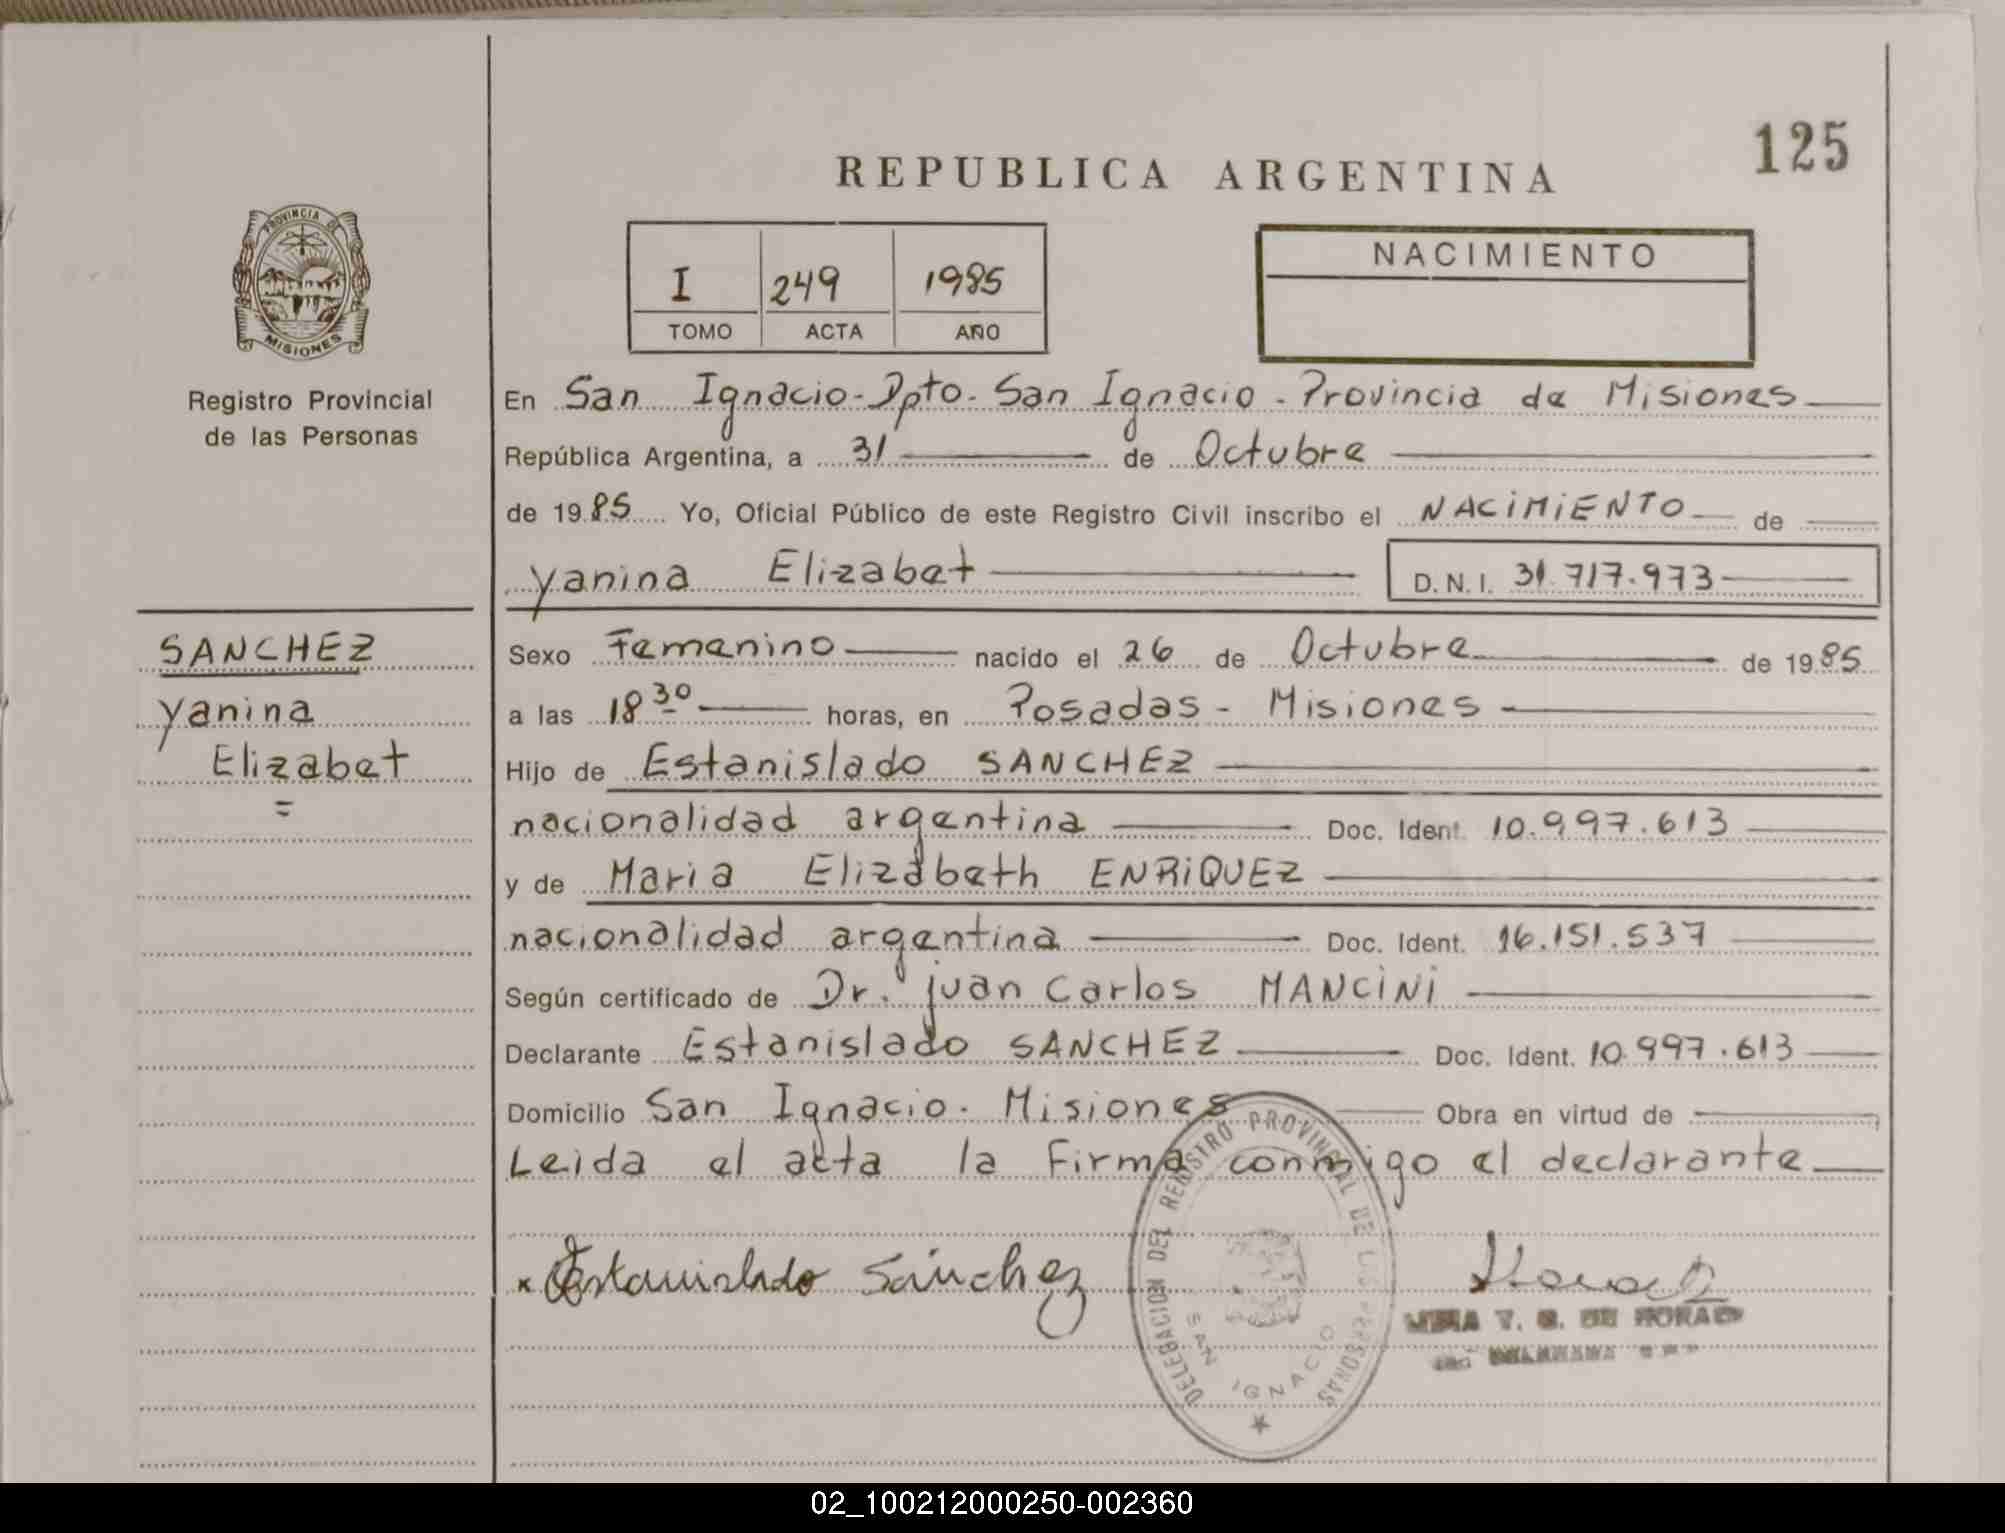 125
REPUBLICA ARGENTINA
I 249 1985
TOMO ACTA AÑO
NACIMIENTO
PROVINCIA DE
MISIONES
Registro Provincial
de las Personas
SANCHEZ
Yanina
Elizabet
=
En San Ignacio - Dpto. San Ignacio - Provincia de Misiones
República Argentina, a 31 de Octubre
de 1985 Yo, Oficial Público de este Registro Civil inscribo el NACIMIENTO de
Yanina Elizabet D.N.I. 31.717.973
Sexo Femenino nacido el 26 de Octubre de 1985
a las 18 30 horas, en Posadas - Misiones
Hijo de Estanislado SANCHEZ
nacionalidad argentina Doc. Ident. 10.997.613
y de Maria Elizabeth ENRIQUEZ
nacionalidad argentina Doc. Ident. 16.151.537
Según certificado de Dr. Juan Carlos MANCINI
Declarante Estanislado SANCHEZ Doc. Ident. 10.997.613
Domicilio San Ignacio - Misiones Obra en virtud de
Leida el acta la Firma conmigo el declarante
x Estanislado Sánchez
DELEGACION DEL REGISTRO PROVINCIAL DE LAS PERSONAS
SAN IGNACIO
02_100212000250-002360